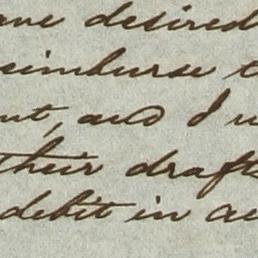 desired
reimburse
and I
their drafts
debit in